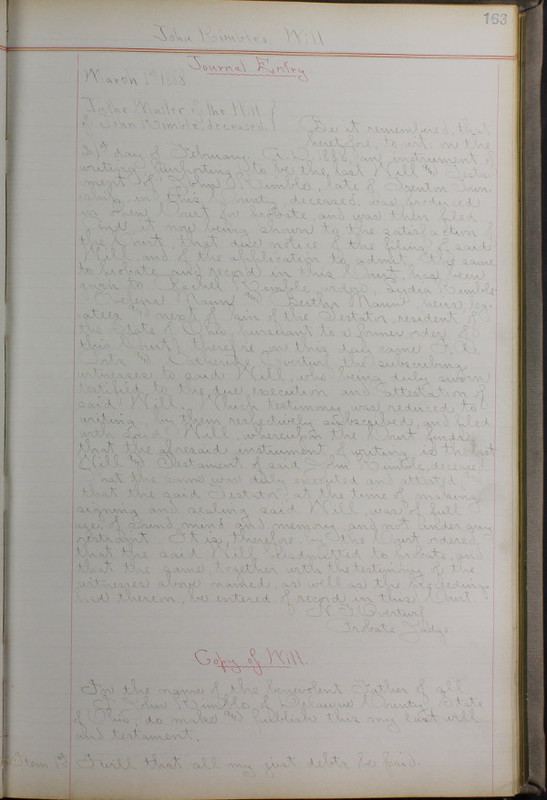 163
John Kimble's Will
Journal Entry
March 1st 1888
In the Matter of the Will
of John Kimble, deceased. Be it remembered, that
heretofore, to wit, on the
21st day of February, A.D. 1888, an instrument of
writing purporting to be the last Will & Testa-
ment of John Kimble, late of Trenton Town
ship, in this County, deceased, was produced
in open Court for probate, and was then filed
And it now being shown to the satisfaction of
the Court, that due notice of the filing of said
Will, and of the application to admit the same
to probate and record in this Court, has been
given to Rachel Kimble widow, Kimble
Mann & Mann, being leg-
atees & next of kin of the Testator, resident of
the State of Ohio, pursuant to a former order of
this Court, therefore on this day came
& Catherine Overturf, the subscribing
witnesses to said Will, who being duly sworn
testified to the due execution and attestation of
said Will; Which testimony was reduced to
writing, by them respectively subscribed, and filed
with said Will, whereupon the Court finds
that the aforesaid instrument of writing is the last
Will & Testament of said John Kimble, deceased
that the same was duly executed and attested
that the said Testator, at the time of making
signing and sealing said Will, was of full
age, of sound mind and memory, and not under any
restraint. It is, therefore, by the Court ordered
that the said Will be admitted to probate, and
that the same together with the testimony of the
witnesses above named, as well as the proceedings
had therein, be entered of record in this Court
Overturf
Probate Judge
Copy of Will.
In the name of the benevolent Father of all
I, John Kimble, of Delaware County, State
of Ohio, do make & publish this my last will
and testament.
Item 1st I will that all my just debts be paid.